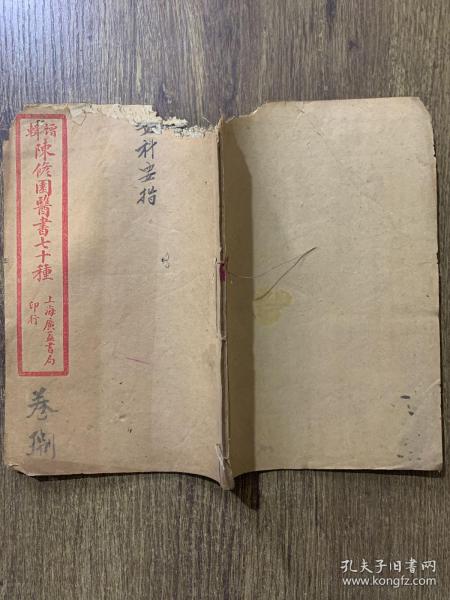 增輯
陳修園醫書七十種
上海廣益書局
印行
科要指
卷
孔夫子旧书网
www.kongfz.com